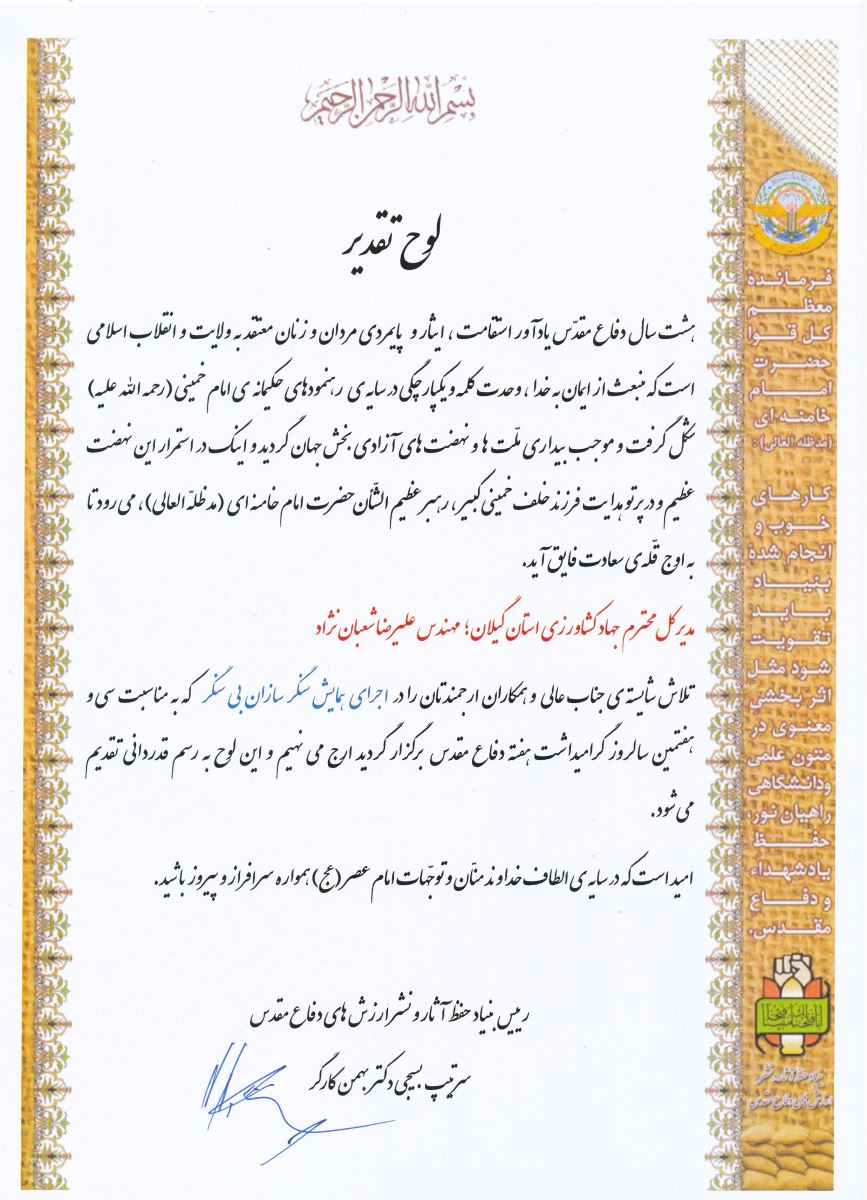 بسم الله الرحمن الرحیم
لوح تقدیر
هشت سال دفاع مقدّس یادآور استقامت، ایثار و پایمردی مردان و زنان معتقد به ولایت و انقلاب اسلامی
است که منبعث از ایمان به خدا، وحدت کلمه و یکپارچگی در سایه ی رهنمودهای حکیمانه ی امام خمینی (رحمه الله علیه)
شکل گرفت و موجب بیداری ملّت ها و نهضت های آزادی بخش جهان گردید و اینک در استمرار این نهضت
عظیم و در پرتو هدایت فرزند خلف خمینی کبیر، رهبر عظیم الشّأن حضرت امام خامنه ای (مد ظلّه العالی)، می رود تا
به اوج قلّه ی سعادت فایق آید.
مدیر کل محترم جهاد کشاورزی استان گیلان؛ مهندس علیرضا شعبان نژاد
تلاش شایسته ی جناب عالی و همکاران ارجمندتان را در اجرای همایش سنگر سازان بی سنگر که به مناسبت سی و
هفتمین سالروز گرامیداشت هفته دفاع مقدس برگزار گردید ارج می نهیم و این لوح به رسم قدردانی تقدیم
می شود.
امید است که در سایه ی الطاف خداوند منّان و توجّهات امام عصر (عج) همواره سرافراز و پیروز باشید.
رییس بنیاد حفظ آثار و نشر ارزش های دفاع مقدس
سرتیپ بسیجی دکتر بهمن کارگر
فرماندهٔ
معظم
کل قوا
حضرت
امام
خامنه ای
(مدظله العالی):
کارهای
خوب و
انجام شدهٔ
بنیاد
باید
تقویت
شود مثل
اثر بخشی
معنوی در
متون علمی
ودانشگاهی
راهیان نور،
حفظ
یادشهداء
و دفاع
مقدس.
انا فتحنا لک فتحا مبینا
بنیاد حفظ آثار و نشر
ارزش های دفاع مقدس